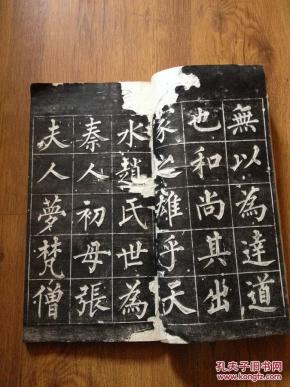 無以為達道
也和尚其出
家之雄乎天
水趙氏世為
秦人初母張
夫人夢梵僧
孔夫子旧书网